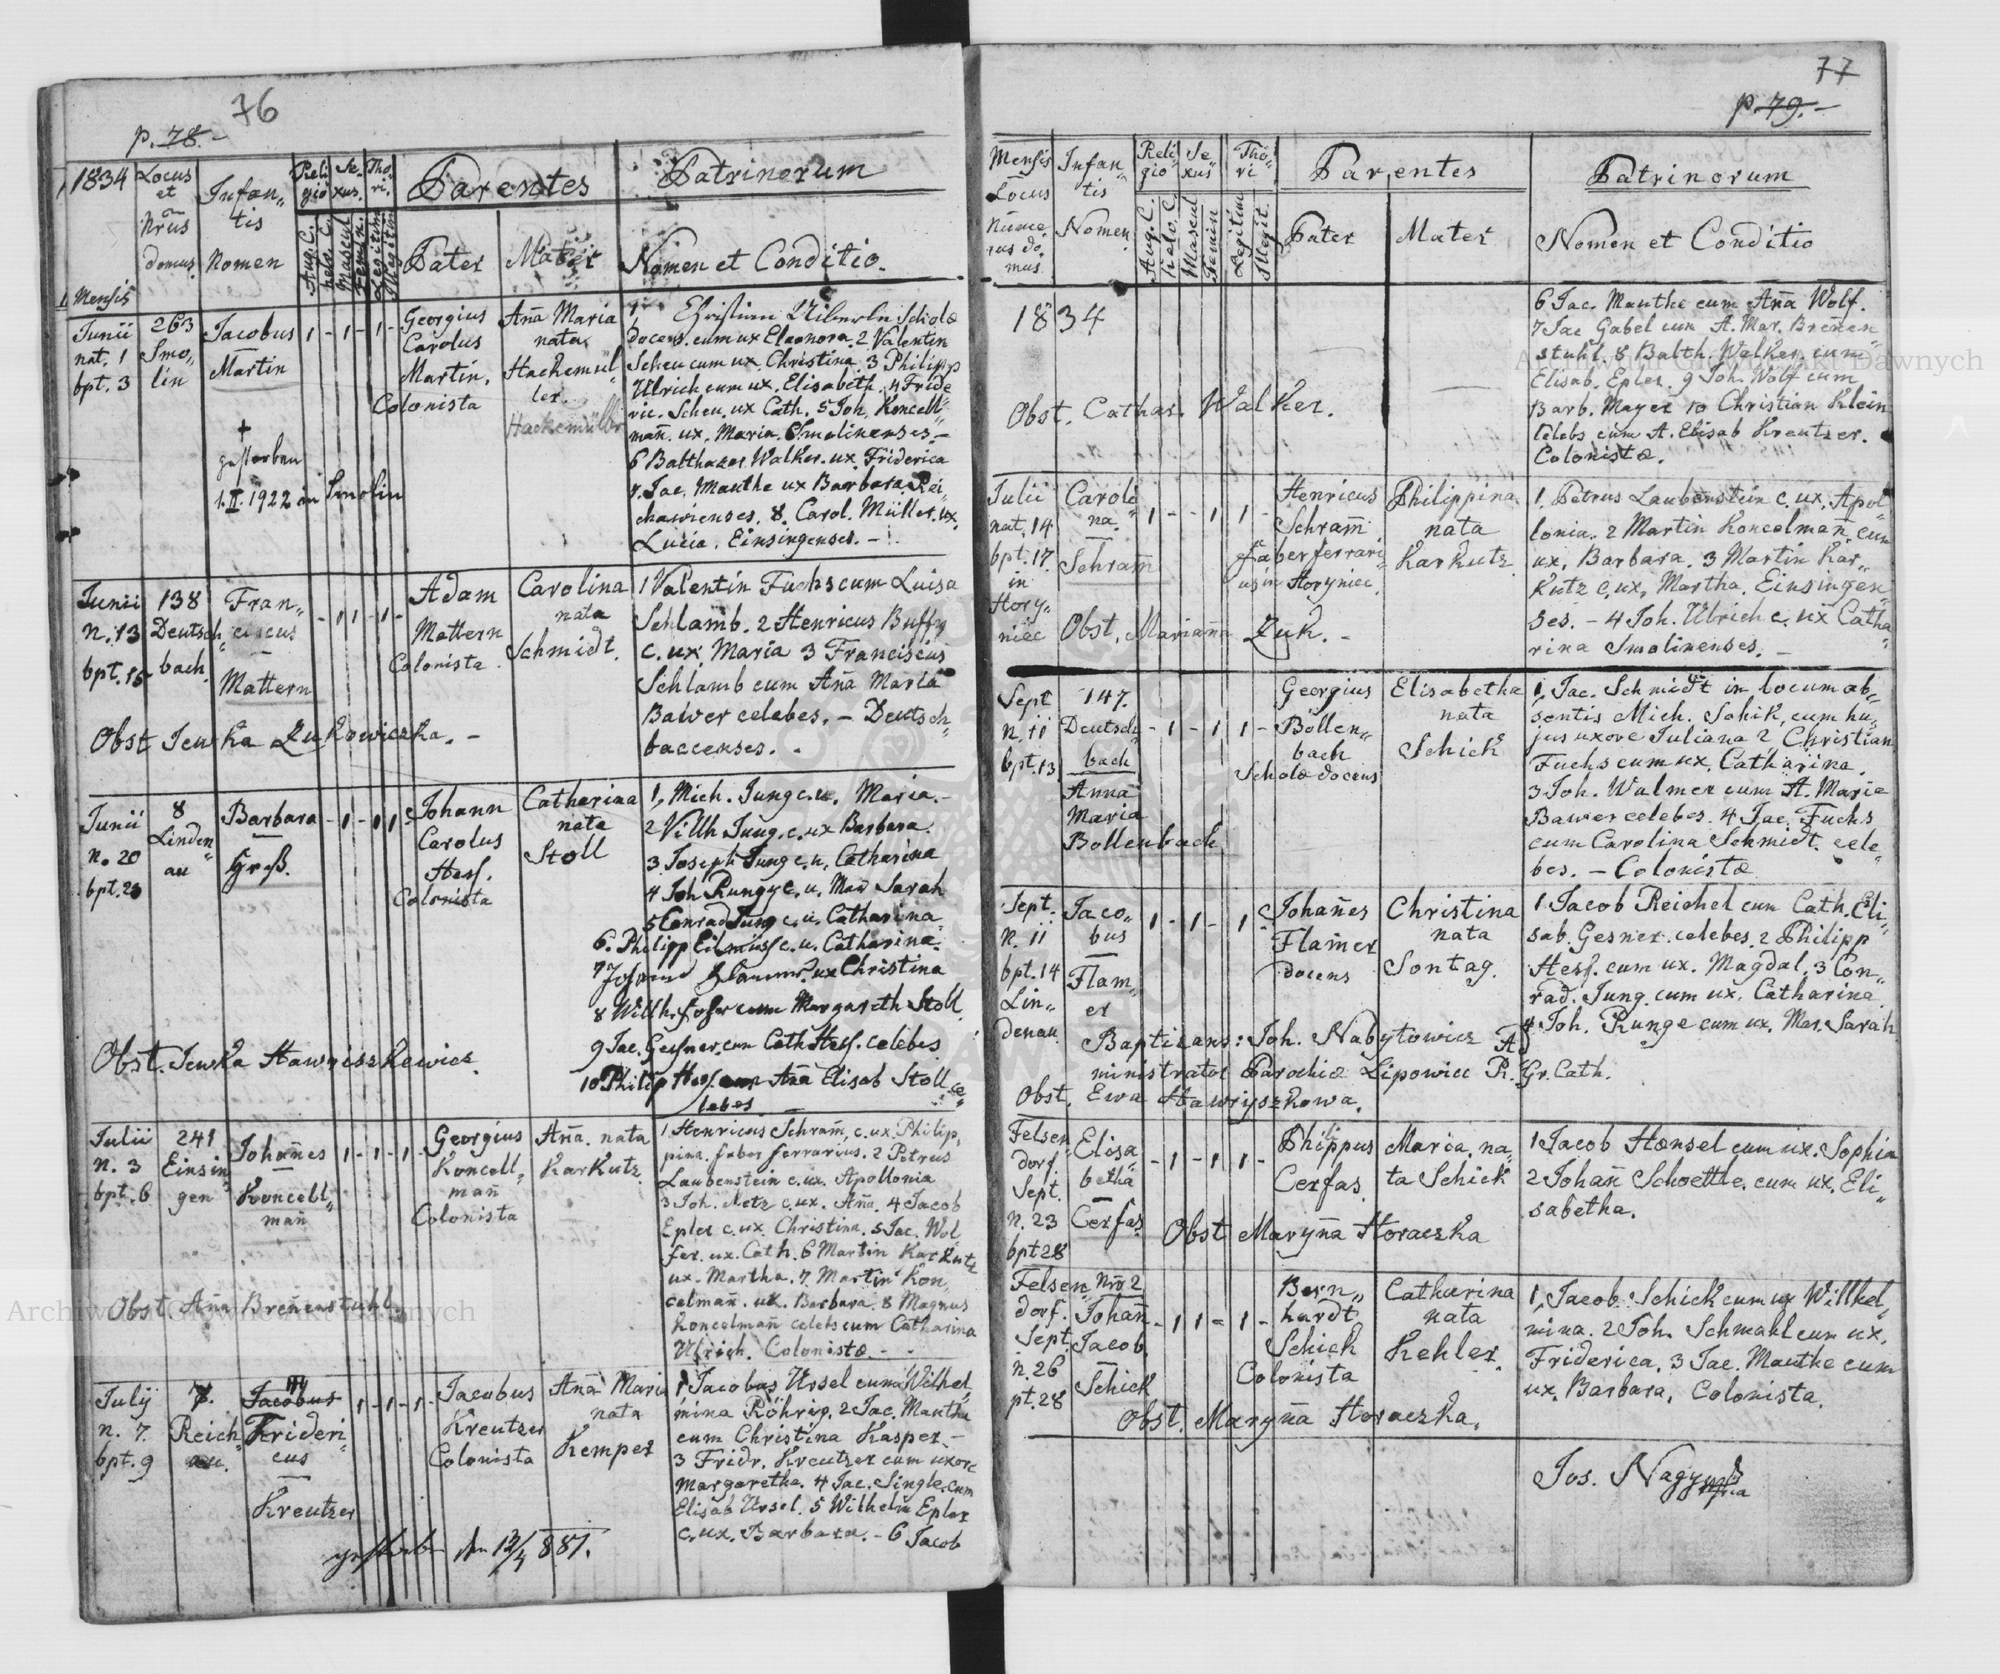 76
p. 78. -
1834
Locus et Nrus domus
Infantis Nomen
Religio
Sexus
Thori
Parentes
Patrinorum
Aug. C.
Helv. C.
Mascul
Femin.
Legitim
Illegitim
Pater
Mater
Nomen et Conditio.
Mensis
Junii
nat. 1
bpt. 3
263
Smo„
lin
Jacobus
Martin
1 - 1 - 1 -
Georgius
Carolus
Martin.
Colonista
Aña Maria
nata
Hackemül„
ler.
Hackemüller
docens. cum ux Eleonora. 2 Valentin
Scheu cum ux. Christina 3 Philipp
Ulrich cum ux. Elisabeth. 4 Fride
ric. Scheu. ux Cath. 5 Joh. Koncell„
mañ. ux. Maria. Smolinenses. -
6 Balthazer Walker. ux. Friderica
7. Jac. Manthe ux Barbara. Rei„
chawienses. 8. Carol. Müller. ux.
Lucia. Einsingenses. -
+
gestorben
1. II. 1922 in Smolin
Junii
n. 13
bpt. 15
138
Deutsch„
bach.
Fran„
ciscus
Mattern
- 1 1 - 1 -
Adam
Mattern
Colonista
Carolina
nata
Schmidt.
1 Valentin Fuchs cum Luisa
Schlamb. 2 Henricus Buffy
c. ux. Maria 3 Franciscus
Schlamb cum Aña Maria
Bawer celebes. - Deutsch„
baccenses.
Obst Jewka Zukowiczka. -
Junii
n. 20
bpt. 23
8
Linden„
au
Barbara
Heß.
- 1 - 1 1 -
Johann
Carolus
Hess.
Colonista
Catharina
nata
Stoll
1, Mich. Jung c. u. Maria. -
2 Vilh Jung. c. ux Barbara.
3. Joseph Jung c. u. Catharina
4 Joh Rungy c. u. Mar Sarah
5 Conrad Jung c. u. Catharina
6. Philipp Eilmüss c. u. Catharina.
7 Johann Flamer. ux Christina
8 Willh. cum Margareth Stoll
9 Jac. Gessner. cum Cath Hess. celebes
10 Philip Hess. cum Aña Elisab Stoll ce„
lebes
Obst. Jewka Hawriszkewicz.
Julii
n. 3
bpt. 6
241
Einsin„
gen
Johañes
Koncell„
mañ
1 - 1 - 1 -
Georgius
Koncell„
mañ
Colonista
Aña. nata
Karkutz.
1 Henricus Schram̃, c. ux. Philip„
pina. faber ferrarius. 2 Petrus
Laubenstein c. ux. Apollonia
3 Joh. Metz c. ux. Aña. 4 Jacob
Epler c. ux Christina. 5 Jac. Wol„
fer. ux. Cath. 6 Martin Karkutz
ux. Martha. 7. Martin Kon„
celmañ. ux. Barbara. 8 Magnus
Koncelmañ celebs cum Catharina
Ulrich. Colonistæ. -
Obst Aña Breñenstuhl.
Julij
n. 7.
bpt. 9
7.
Reich„
au.
Jacobus
Frideri„
cus
Kreutzer
1 - 1 - 1 -
Jacobus
Kreutzer
Colonista
Aña Maria
nata
Kemper
1 Jacobus Ursel cum Wilhel„
mina Röhrig. 2 Jac. Manthe
cum Christina Kasper. -
3 Fridr. Kreutzer cum uxore
Margaretha. 4 Jac. Single. cum
Elisab Ursel. 5 Wilhelm Epler
c. ux. Barbara. - 6 Jacob
gestorben den 12/4 887.
77
p. 79. -
Mensis
Locus
Nume„
rus do„
mus
Infan„
tis
Nomen.
Reli„
gio
Se„
xus
Tho„
ri
Parentes
Patrinorum
Aug. C.
Helv. C.
Mascul
Femin
Legitim
Illegit.
Pater
Mater
Nomen et Conditio
1834
6 Jac. Manthe cum Aña Wolf.
7 Jac Gabel cum A. Mar. Breñen„
stuhl. 8 Balth. Walker. cum
Elisab. Epler. 9 Joh. Wolf cum
Barb. Mayer 10 Christian Klein
celebs cum A. Elisab Kreutzer.
Colonistæ.
Obst. Cathar. Walker.
Julii
nat. 14
bpt. 17.
in
Hory„
niec
Caroli„
na.
Schram̃
1 - - 1 1 -
Henricus
Schram̃
faber ferrari„
us in Horyniec.
Philippina
nata
Karkutz
1. Petrus Laubenstein c. ux. Apol„
lonia. 2 Martin Koncelmañ. cum
ux. Barbara. 3 Martin Kar„
kutz c. ux. Martha. Einsingen„
ses. - 4 Joh. Ulrich c. ux Catha„
rina Smolinenses. -
Obst. Mariaña Zuk. -
Sept
n. 11
bpt. 13
147.
Deutsch„
bach
Anna
Maria
Bollenbach
- 1 - 1 1 -
Georgius
Bollen„
bach
Scholæ docens
Elisabetha
nata
Schick
1, Jac. Schmidt in locum ab„
sentis Mich. Schik, cum hu„
jus uxore Juliana 2, Christian
Fuchs cum ux. Catharina.
3 Joh. Walmer cum A. Maria
Bawer celebes. 4 Jac. Fuchs
cum Carolina Schmidt. cele„
bes. - Colonistæ
Sept.
n. 11
bpt. 14
Lin„
denau
Jaco„
bus
Flam„
er
1 - 1 - 1 -
Johañes
Flam̃er
docens
Christina
nata
Sontag.
1 Jacob Reichel cum Cath. Eli„
sab. Gesner. celebes. 2 Philipp
Hess. cum ux. Magdal. 3 Con„
rad. Jung. cum ux. Catharina.
4 Joh. Runge cum ux. Mar. Sarah
Baptizans: Joh. Nabytowicz Ad
ministrator Parochiæ Lipowiec R. Gr. Cath.
Obst. Ewa Hawryszkowa.
Felsen„
dorf.
Sept.
n. 23
bpt 28
Elisa„
betha
Cerfas
- 1 - 1 1 -
Philippus
Cerfas.
Maria. na„
ta Schick
1 Jacob Hænsel cum ux. Sophia
2 Johañ Schoettle. cum ux. Eli„
sabetha.
Obst Maryña Horaczka
Felsen„
dorf.
Sept.
n. 26
pt. 28
Nro 2
Johañ
Jacob.
Schick
- 1 1 - 1 -
Bern„
hardt
Schick
Colonista
Catharina
nata
Kehler.
1, Jacob Schick cum ux Willhel„
mina. 2 Joh. Schmahl cum ux.
Friderica. 3 Jac. Manthe cum
ux. Barbara. Colonista.
Obst. Maryña Horaczka.
Jos. Nagy
Archiwum Główne Akt Dawnych
Archiwum Główne Akt Dawnych